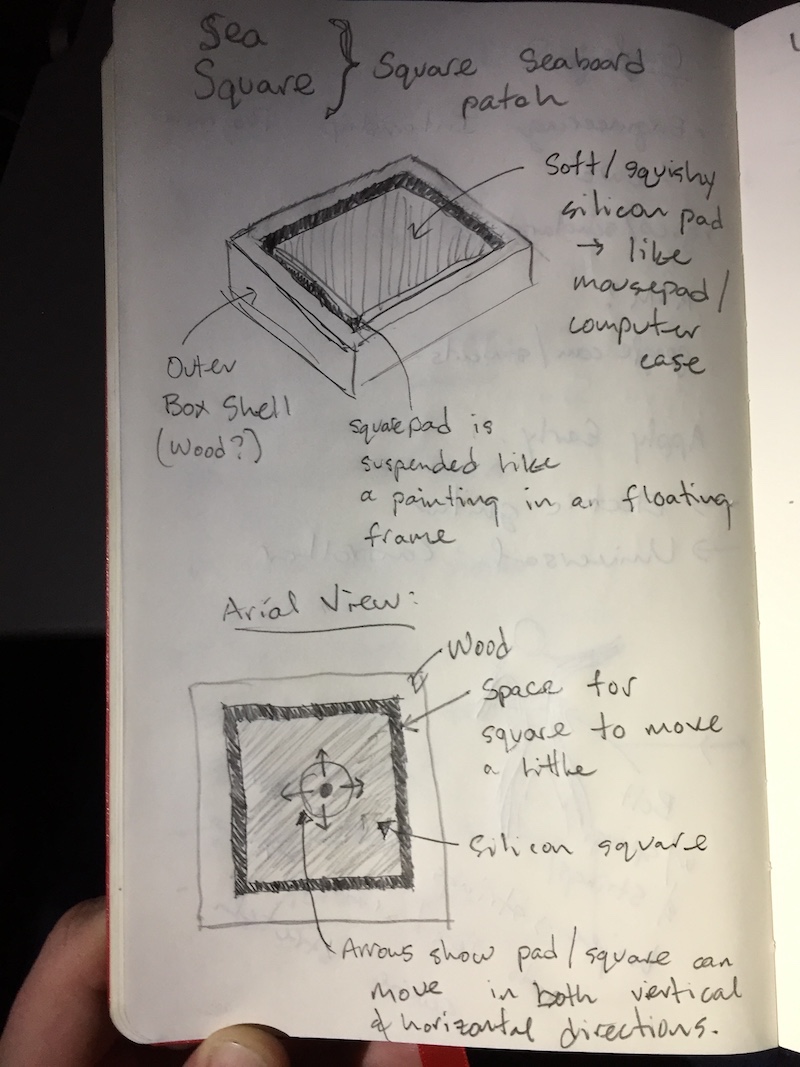 Sea
Square } Square Seaboard
patch
Soft/squishy
silicon pad
→ like
mousepad/
computer
case
Outer
Box Shell
(Wood?)
square pad is
suspended like
a painting in an floating
frame
Arial View:
Wood
Space for
square to move
a little
Silicon square
Arrows show pad/square can
move in both vertical
& horizontal directions.